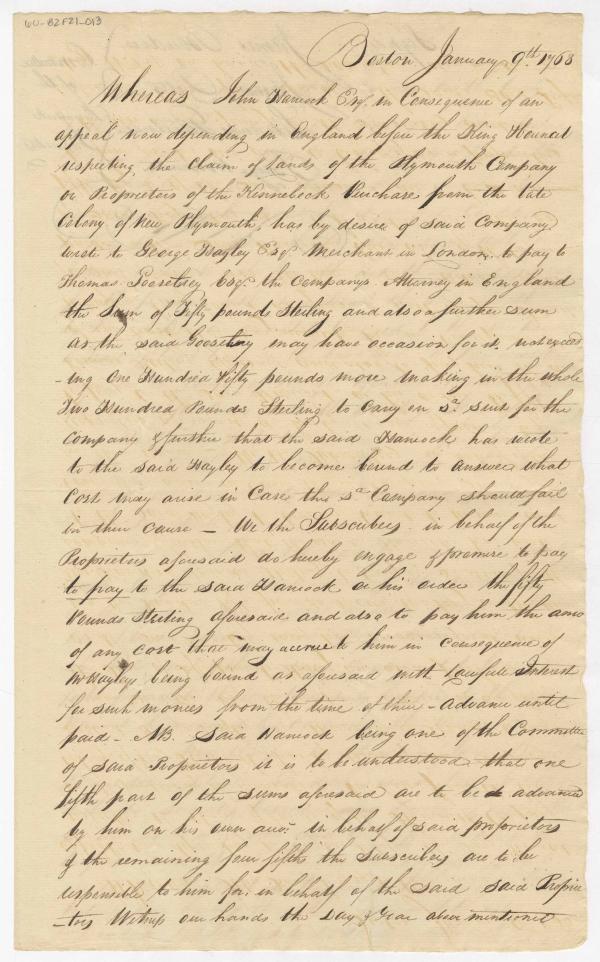 6U-B2F21-013
Boston January 9th. 1768
Whereas John Hancock Esqr. in Consequence of an
appeal now depending in England before the King & Council
respecting the Claim of Lands of the Plymouth Company
or Proprietors of the Kennebeck Purchase from the late
Colony of New Plymouth, has by desire of said Company
wrote to George Hayley Esqr. Merchant in London to pay to
Thomas Goosetrey Esqr. the Companys Attorney in England
the Sum of Fifty pounds Sterling and also a further sum
as the said Goosetrey may have occasion for it not exceed
-ing One Hundred & fifty pounds more making in the whole
Two Hundred Pounds Sterling to Carry on sd. suit for the
Company & further that the said Hancock has wrote
to the said Hayley to become bound to answer what
Cost may arise in Case the sd Company should fail
in their cause — We the Subscribers in behalf of the
Proprietors aforesaid do hereby engage & promise to pay
to pay to the said Hancock or his order the fifty
Pounds Sterling aforesaid and also to pay him the amo
of any cost that may accrue to him in consequence of
Mr Hayleys being bound as aforesaid with Lawfull Interest
for such monies from the time of their advance until
paid — NB. Said Hancock being one of the Committee
of said Proprietors it is to be understood that one
fifth part of the sums aforesaid are to be advanced
by him on his own acco. in behalf of said proprietors
& the remaining four fifths the Subscribers are to be
responsible to him for in behalf of the said said Proprie
-tors Witness our hands the Day & Year above mentioned